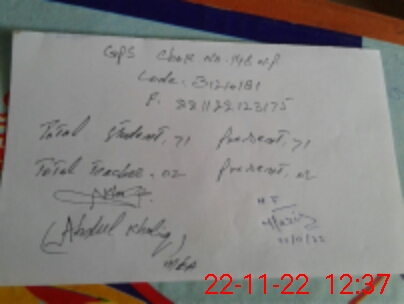 GPS Chak No. 146 NP
Code. 31210181
P. 221122123175
Total Student, 71 Present, 71
Total Teacher. 02 Present, 02
(Abdul Khaliq)
MEA
H.T
22/11/22
22-11-22 12:37